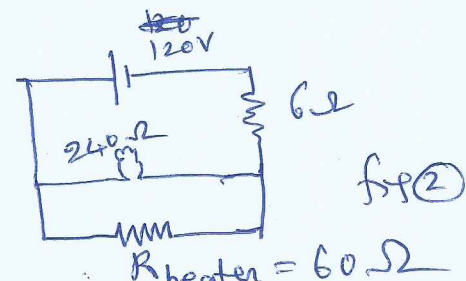 120V
6Ω
240Ω
fig ②
R heater = 60 Ω